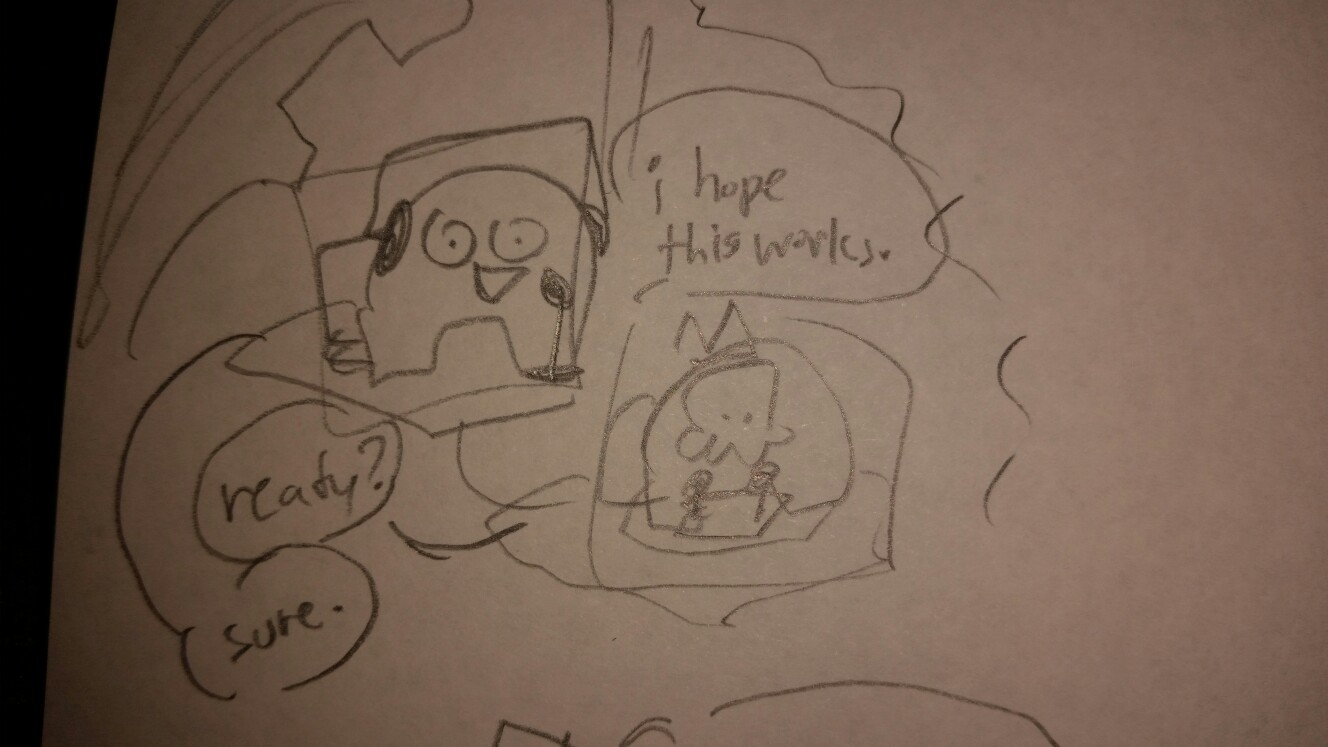 i hope
this works.
ready?
sure.